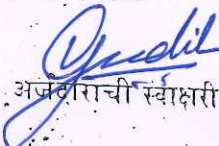 अर्जदाराची स्वाक्षरी